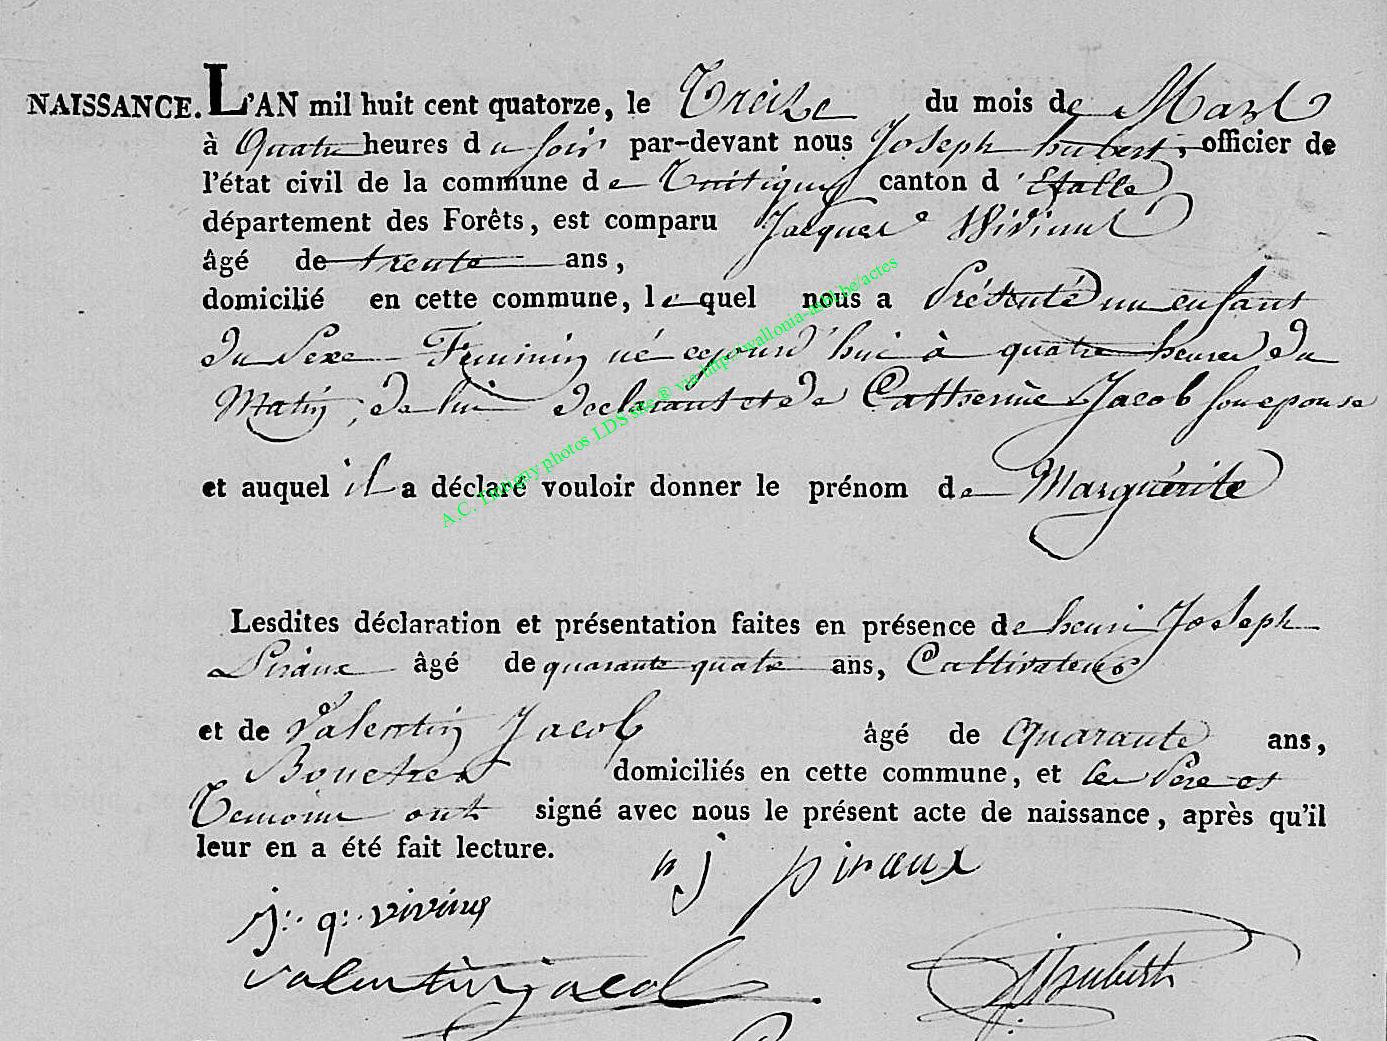 NAISSANCE. L'AN mil huit cent quatorze, le Treize du mois de Mars
à Quatre heures du soir par-devant nous Joseph hubert, officier de
l'état civil de la commune de Tintigny canton d'Etalle
département des Forêts, est comparu Jacques Vivinus
âgé de trente ans,
domicilié en cette commune, lequel nous a Présenté un enfant
du Sexe Feminin né cejourd'hui à quatre heures du
Matin, de lui declarant et de Catherine Jacob son epouse
et auquel il a déclaré vouloir donner le prénom de Marguérite
A.C. Tintigny photos LDS site ® via http://wallonia-asbl.be/actes
Lesdites déclaration et présentation faites en présence de henri Joseph
Piraux âgé de quarante quatre ans, Cultivateur
et de Valentin Jacob âgé de Quarante ans,
domiciliés en cette commune, et les Pere et
Temoins ont signé avec nous le présent acte de naissance, après qu'il
leur en a été fait lecture.
h j piraux
j: q: vivinus
valentin jacob
J Hubert